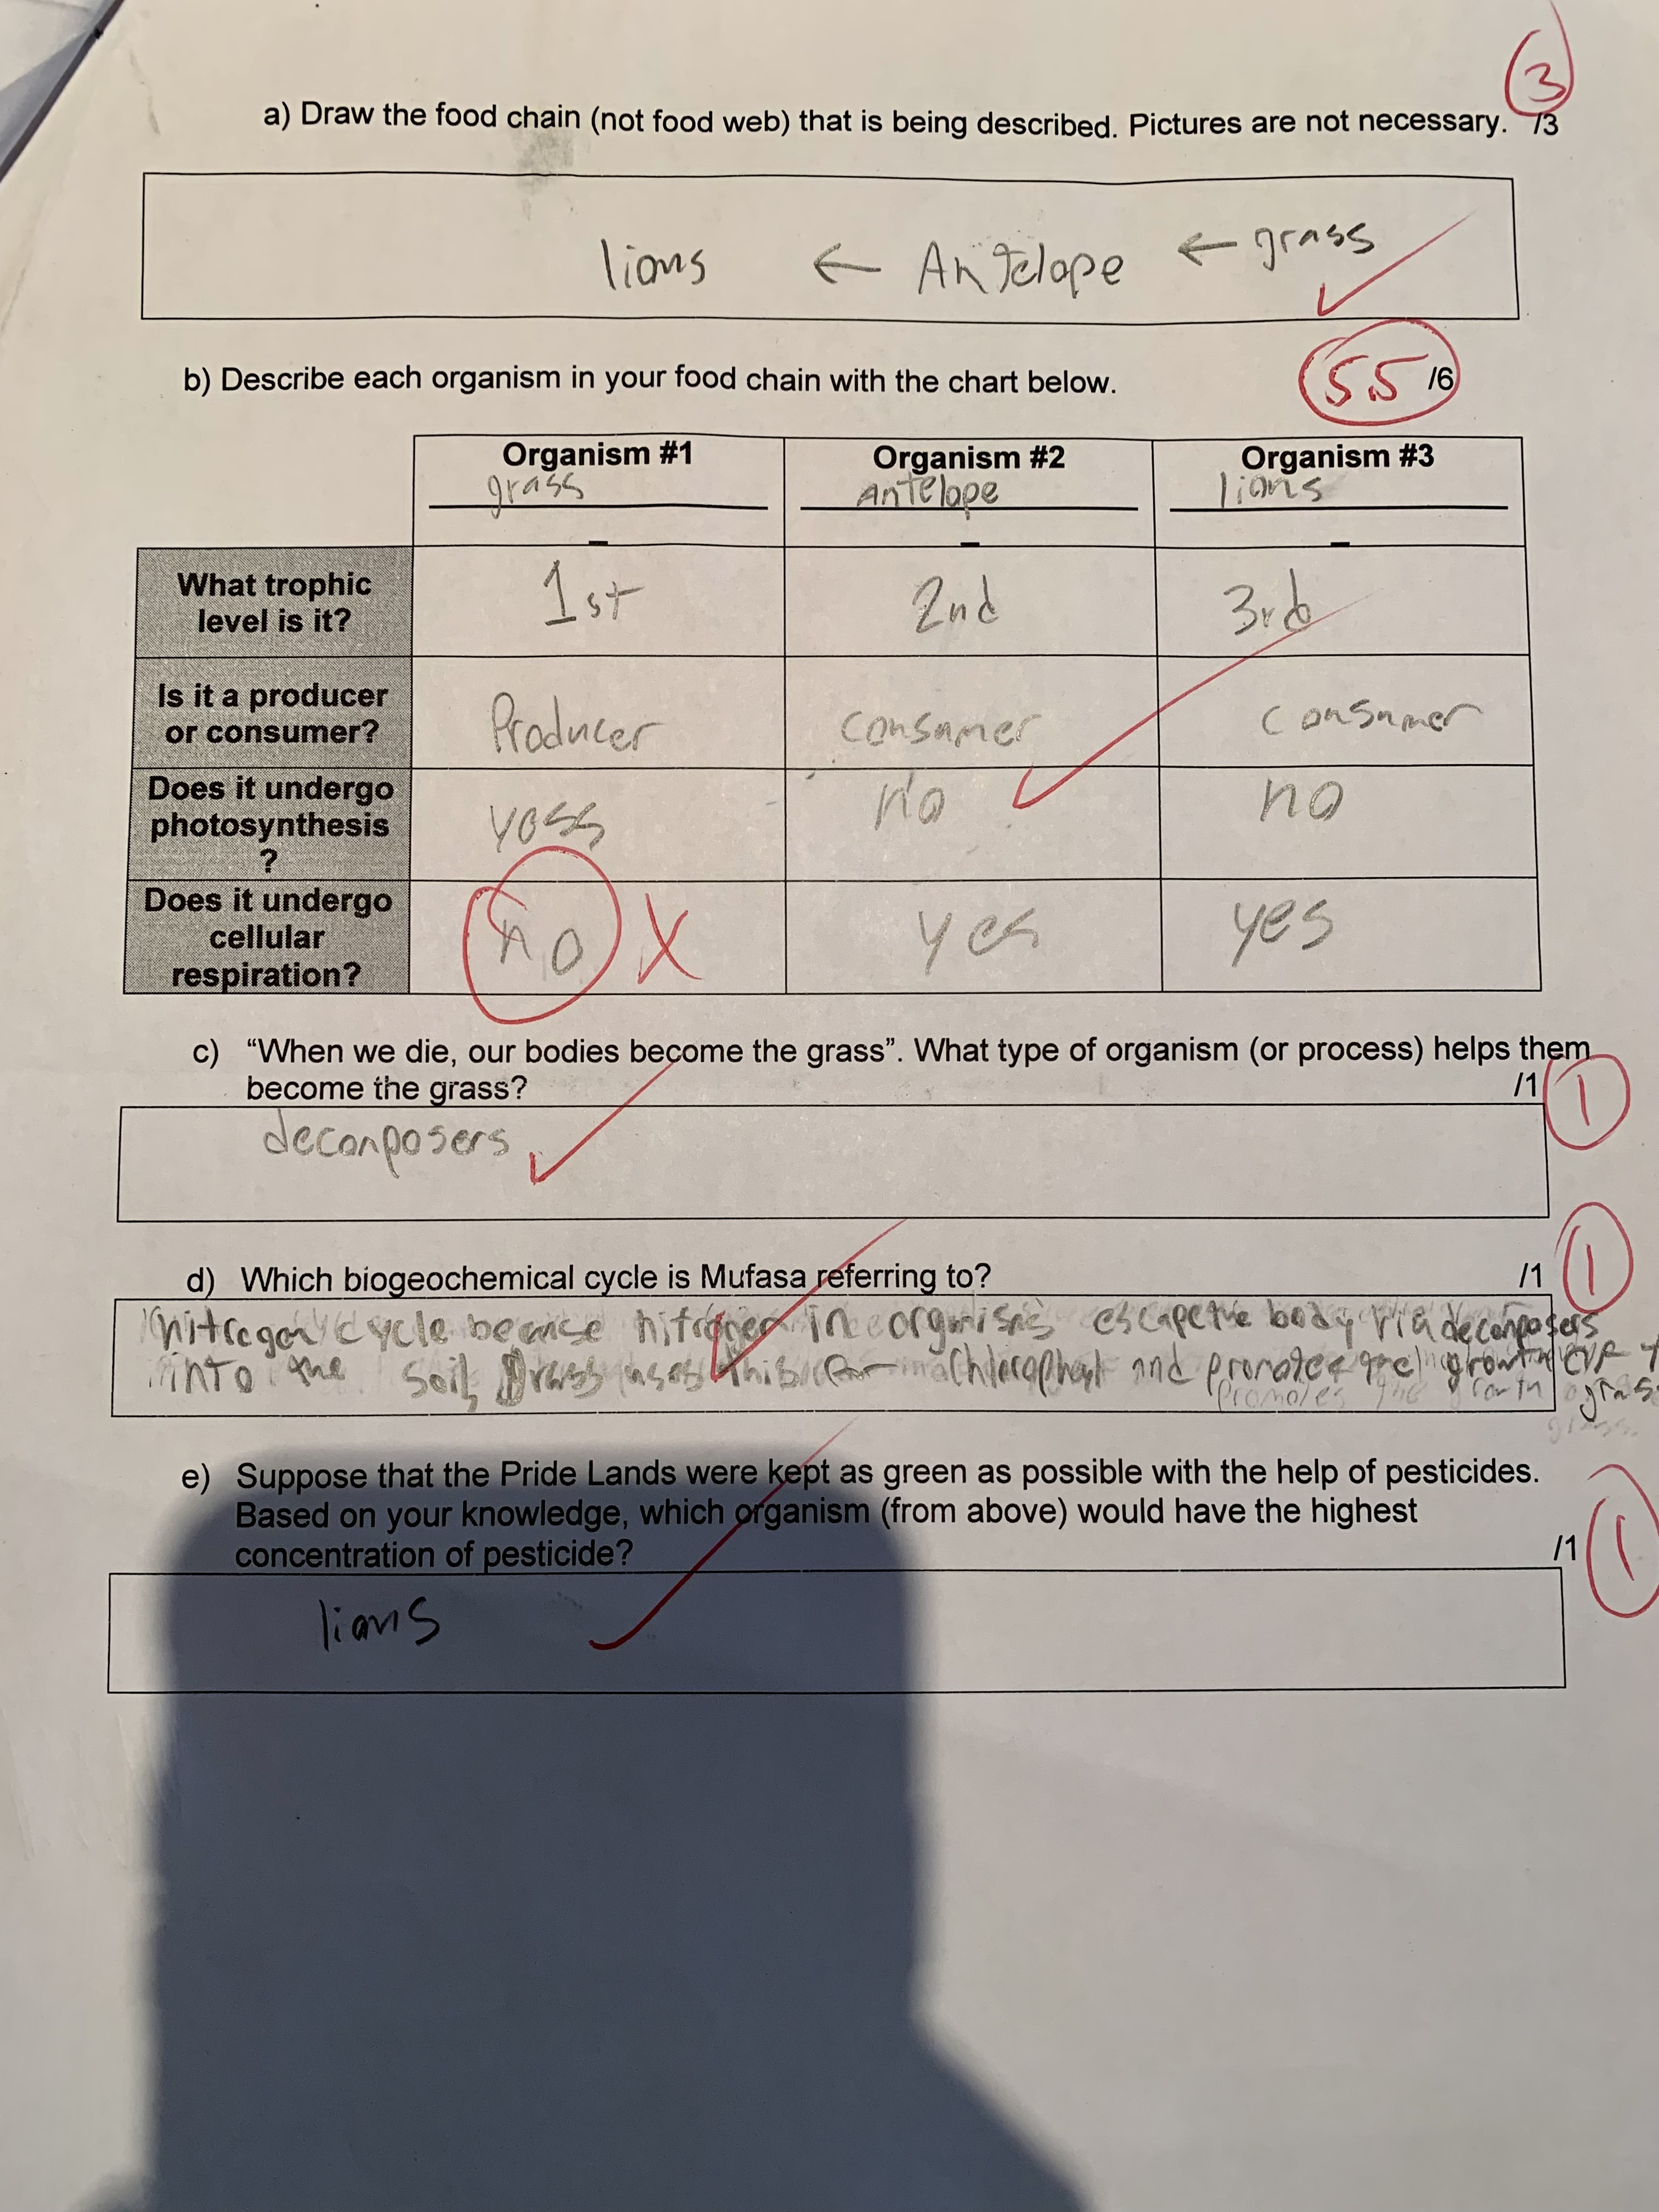 3
a) Draw the food chain (not food web) that is being described. Pictures are not necessary. /3
lions ← Antelope ← grass
b) Describe each organism in your food chain with the chart below. 5.5 /6
Organism #1 Organism #2 Organism #3
grass Antelope lions
What trophic level is it? 1st 2nd 3rd
Is it a producer or consumer? Producer consumer consumer
Does it undergo photosynthesis ? yess no no
Does it undergo cellular respiration? no X yes yes
c) “When we die, our bodies become the grass”. What type of organism (or process) helps them
become the grass? /1 1
deconposers
d) Which biogeochemical cycle is Mufasa referring to? /1 1
nitrogen cycle because nitrogen in organisms escape the body via deconposers
into the soil, grass uses this for Chlorophyl and promotes the growth
Promotes the growth grass
grass.
e) Suppose that the Pride Lands were kept as green as possible with the help of pesticides.
Based on your knowledge, which organism (from above) would have the highest
concentration of pesticide? /1 1
lions